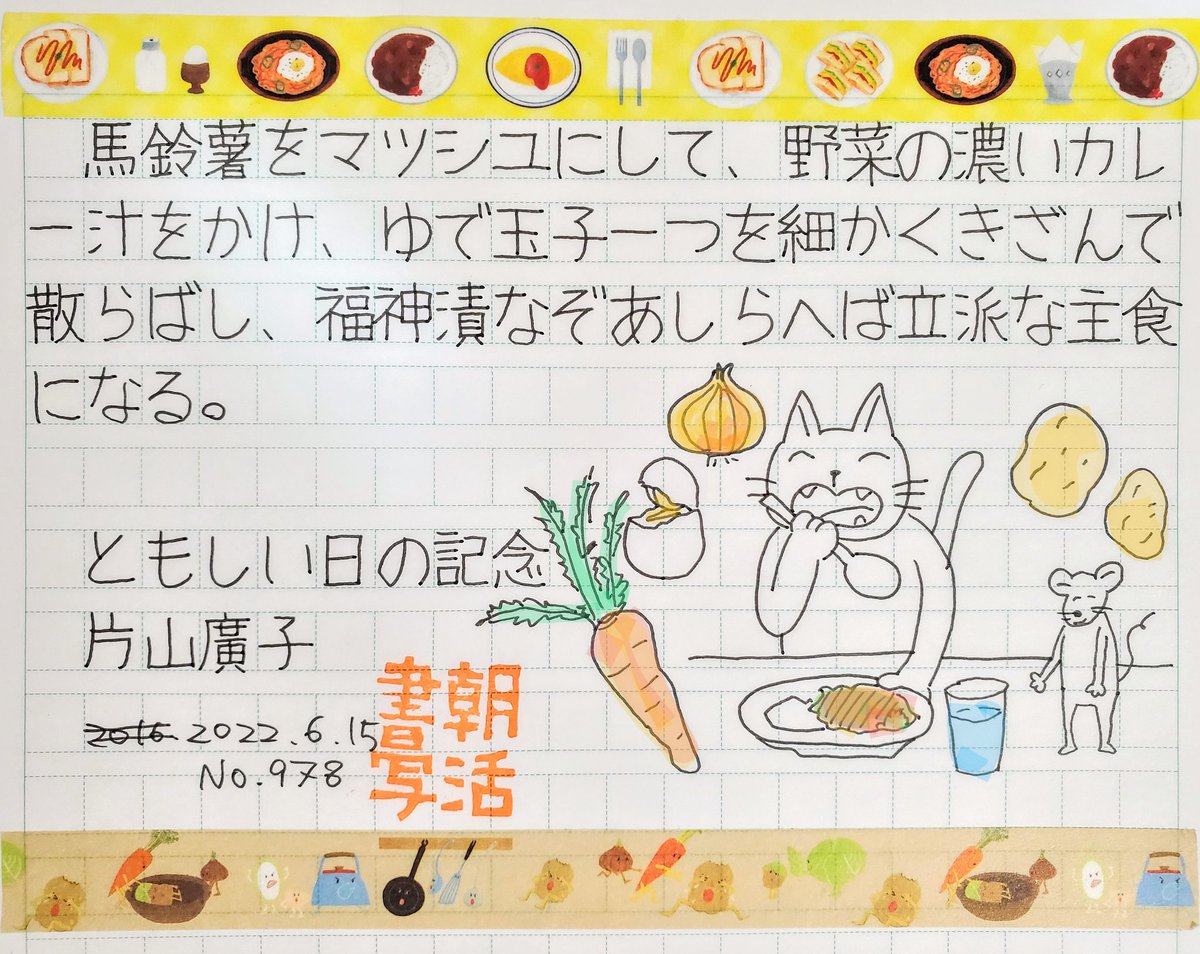 馬鈴薯をマツシユにして、野菜の濃いカレ
ー汁をかけ、ゆで玉子一つを細かくきざんで
散らばし、福神漬なぞあしらへば立派な主食
になる。
ともしい日の記念
片山廣子
2016 2022.6.15
No.978
朝活
書写